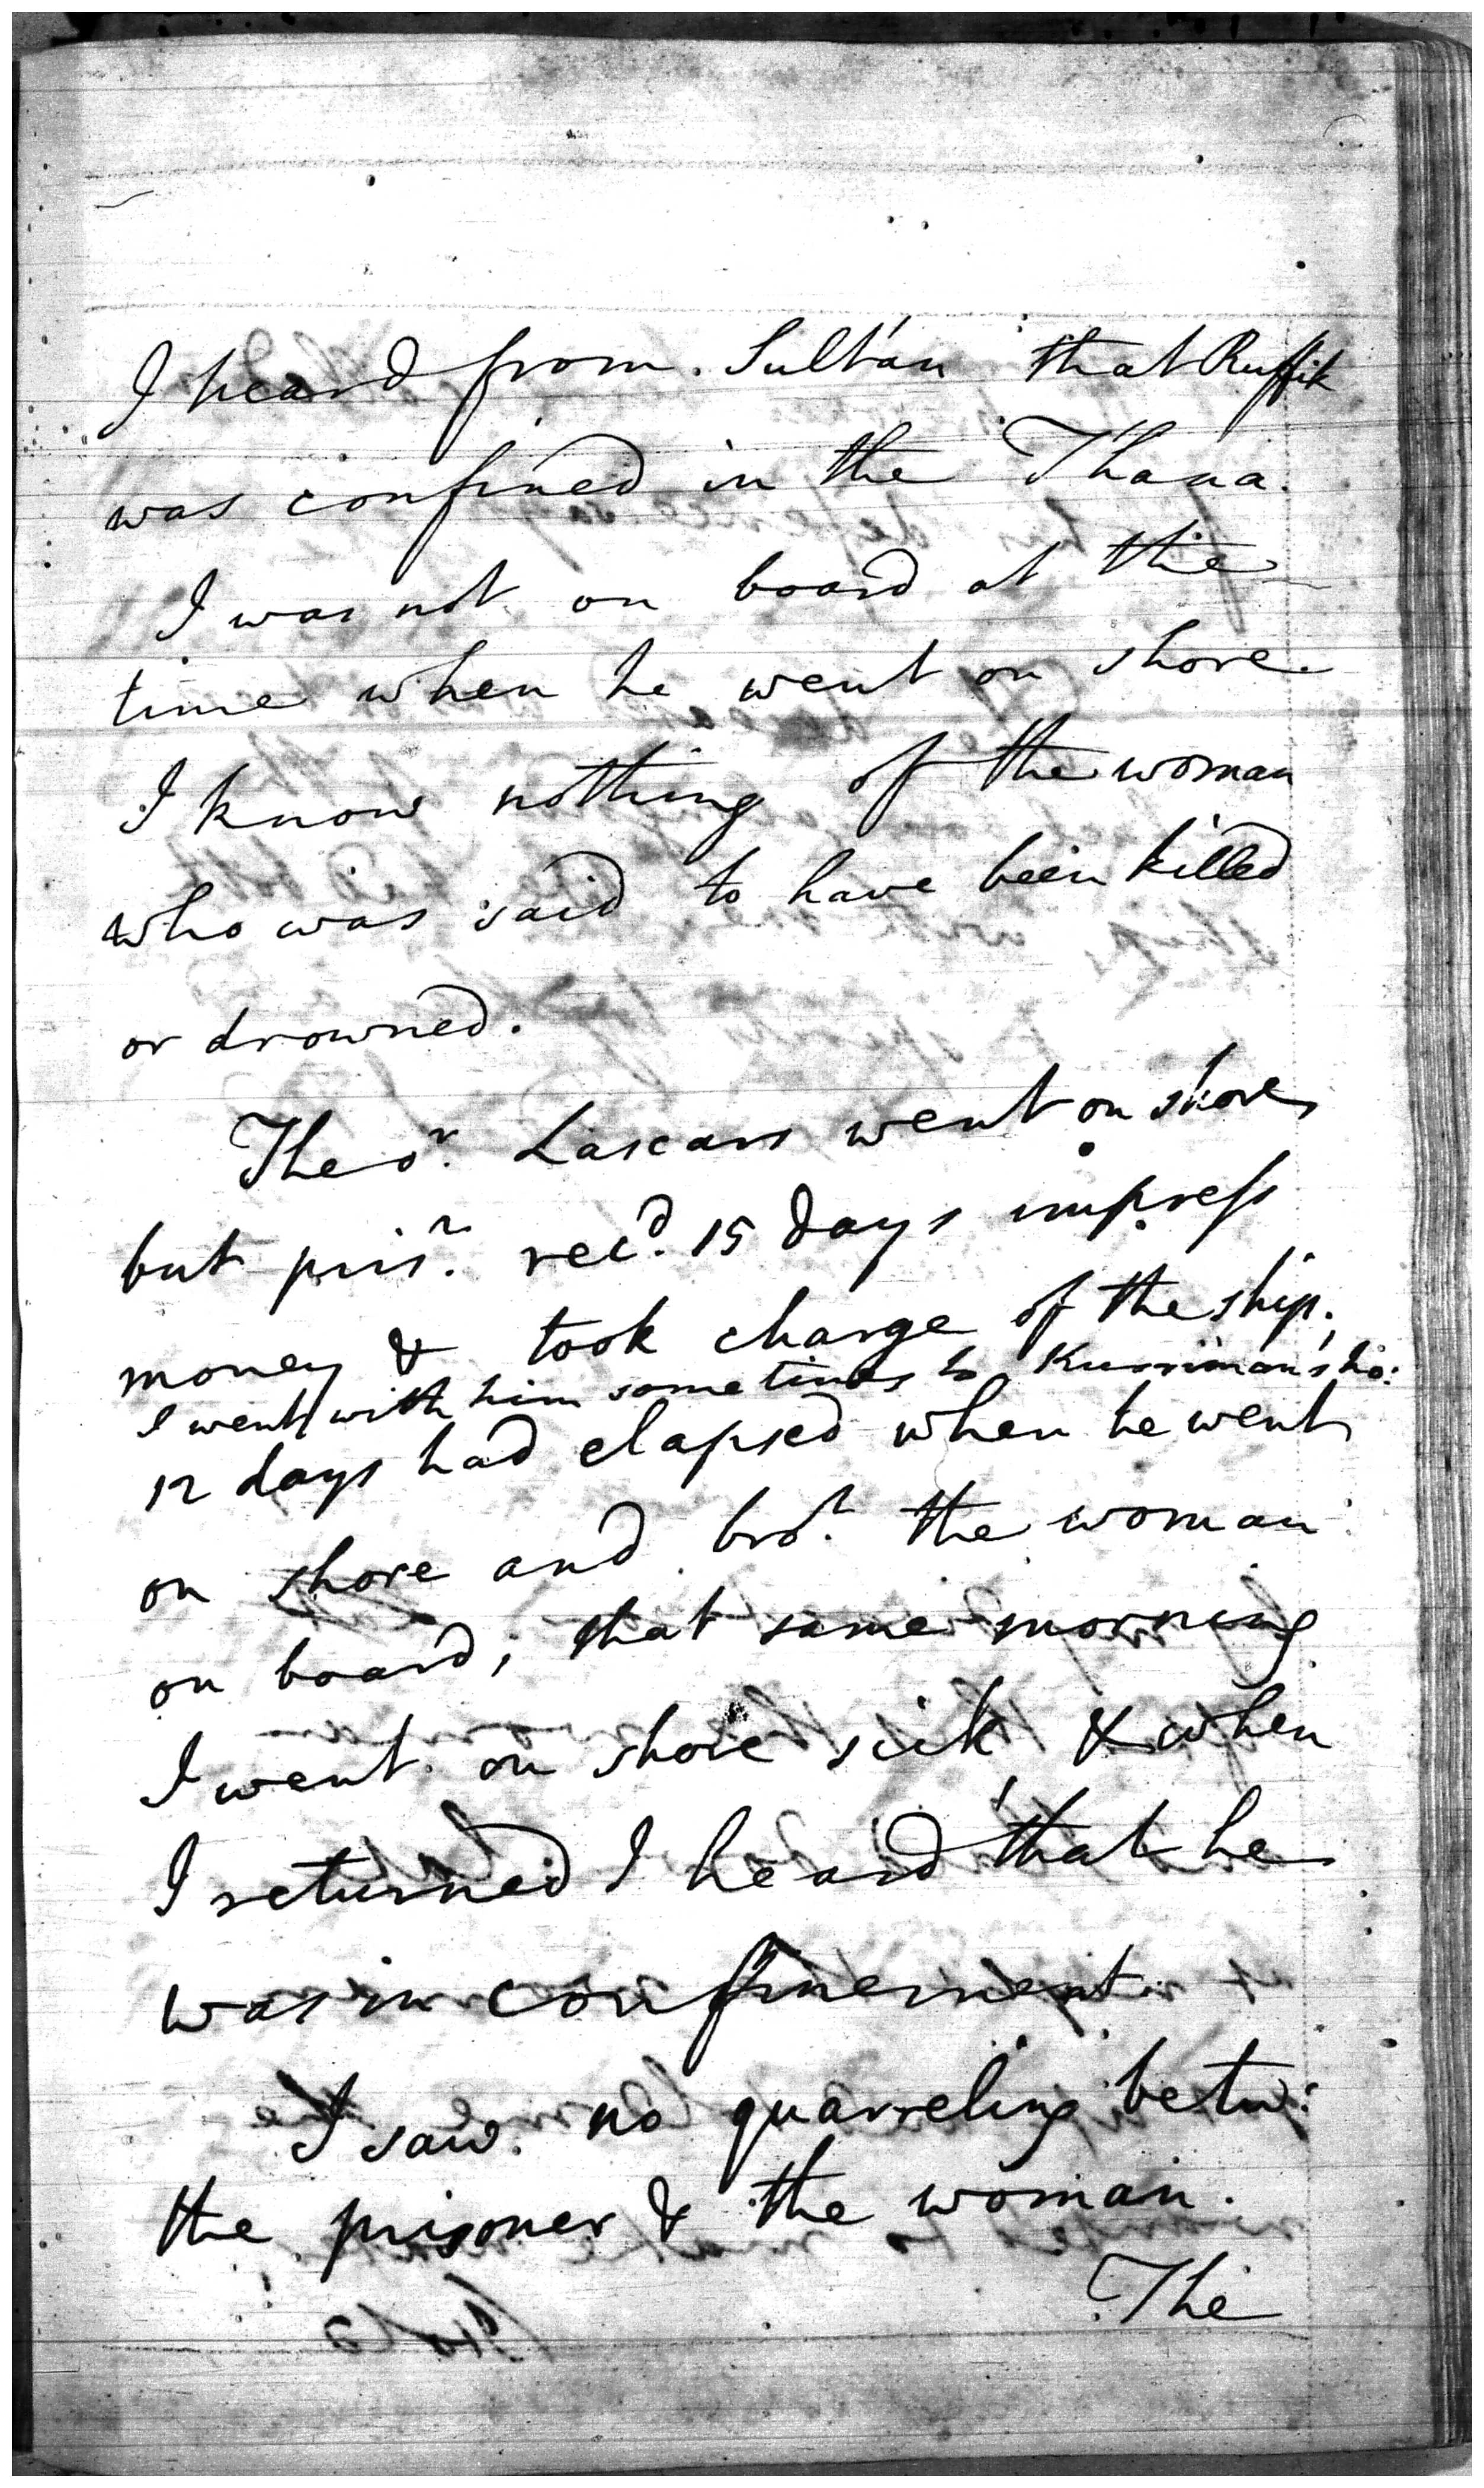 I heard from Sultan that Ruffik
was confined in the Thana.
I was not on board at the
time when he went on shore
I know nothing of the woman
who was said to have been killed
or drowned.
The or. Lascars went on shore
but prisr. recd. 15 days impress
money & took charge of the ship.
I went with him sometimes to Kurriman's ho:
12 days had elapsed when he went
on shore and brot. the woman
on board; that same morning
I went on shore sick & when
I returned I heard that he
was in confinement
I saw no quarreling betw:
the prisoner & the woman.
The